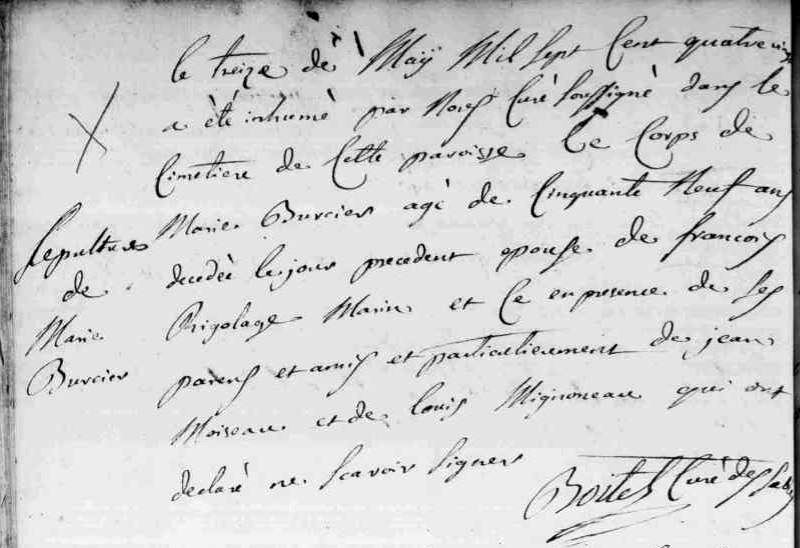 le treize de Maÿ Mil sept Cent quatre vingt
a été inhumé par Nous Curé soussigné dans le
Cimetiere de Cette paroisse Le Corps de
Marie Burcier agé de Cinquante Neuf ans
decedée le jour precedent epouse de francois
Rigolage Marin et Ce en presence de ses
parens et amis et particulierement de jean
Moiseau et de louis Mignoneau qui ont
declaré ne scavoir signer
Sepulture
de
Marie
Burcier
Boitel Curé des Sables